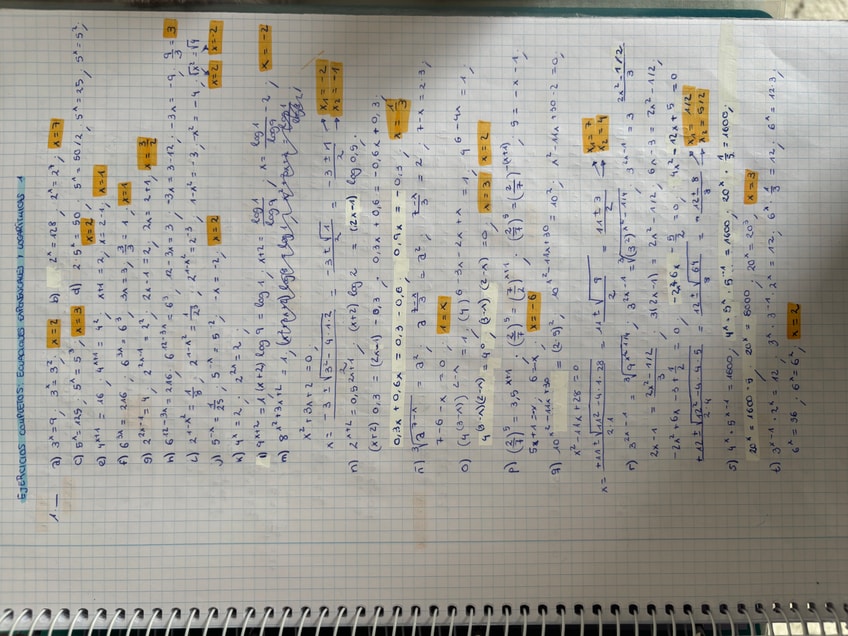 EJERCICIOS COMPLETOS: ECUACIONES EXPONENCIALES Y LOGARÍTMICAS 1
1.— a) 3ˣ = 9 ; 3ˣ = 3² ; x = 2 b) 2ˣ = 128 ; 2ˣ = 2⁷ ; x = 7
c) 5ˣ = 125 ; 5ˣ = 5³ ; x = 3 d) 2·5ˣ = 50 ; 5ˣ = 50/2 ; 5ˣ = 25 ; 5ˣ = 5² ; x = 2
e) 4ˣ⁺¹ = 16 ; 4ˣ⁺¹ = 4² ; x+1 = 2 ; x = 2-1 ; x = 1
f) 6³ˣ = 216 ; 6³ˣ = 6³ ; 3x = 3 ; 3/3 = 1 ; x = 1
g) 2²ˣ⁻¹ = 4 ; 2²ˣ⁻¹ = 2² ; 2x-1 = 2 ; 2x = 2+1 ; x = 3/2
h) 6¹²⁻³ˣ = 216 ; 6¹²⁻³ˣ = 6³ ; 12-3x = 3 ; -3x = 3-12 ; -3x = -9 ; 9/3 = 3
i) 2^(1-x²) = 1/8 ; 2^(1-x²) = 1/2³ ; 2^(1-x²) = 2⁻³ ; 1-x² = -3 ; -x² = -4 ; √x² = √4 x = 2 x = -2
j) 5⁻ˣ = 1/25 ; 5⁻ˣ = 5⁻² ; -x = -2 ; x = 2
k) 4ˣ = 2 ; 2²ˣ = 2 ;
l) 9ˣ⁺² = 1 (x+2) log 9 = log 1 ; x+2 = log 1/log 9 ; x = log 1/log 9 - 2 ; x = -2
m) 8^(x²+3x+2) = 1 ;
x²+3x+2 = 0 ;
x = (-3 ± √(3²-4·1·2))/2 = (-3 ± √1)/2 = (-3 ± 1)/2 → x₁ = -2 x₂ = -1
n) 2ˣ⁺² = 0,5²ˣ⁻¹ ; (x+2) log 2 = (2x-1) log 0,5 ;
(x+2) 0,3 = (2x-1) -0,3 ; 0,3x + 0,6 = -0,6x + 0,3 ;
0,3x + 0,6x = 0,3 - 0,6 ; 0,9x = -0,3 ; x = 1/3
7-6 = x = 0 ; 1 = x
4(3-x)(2-x) = 4⁰ ; (3-x)(2-x) = 0 ; x = 3 ; x = 2
5x+1-x ; 6 = x ; x = -6
q) 10^(x²-11x+30) = (2·5)² ; 10^(x²-11x+30) = 10² ; x²-11x+30-2 = 0 ;
x²-11x+28 = 0
x = (+11 ± √(11²-4·1·28))/(2·1) = (11 ± √9)/2 = (11 ± 3)/2 → x₁ = 7 x₂ = 4
2x-1 = (2x²-1/2)/3 ; 3(2x-1) = 2x²-1/2 ; 6x-3 = 2x²-1/2 ;
(+12 ± √(12²-4·4·5))/(2·4) = (12 ± √64)/8 = (12 ± 8)/8 → x₁ = 1/2 x₂ = 5/2
s) 4ˣ·5ˣ⁻¹ = 1600 ; 4ˣ·5ˣ·5⁻¹ = 1600 ; 20ˣ·1/5 = 1600 ;
20ˣ = 1600·5 ; 20ˣ = 8000 ; 20ˣ = 20³ ; x = 3
t) 3ˣ⁻¹·2ˣ = 12 ; 3ˣ·3⁻¹·2ˣ = 12 ; 6ˣ·1/3 = 12 ; 6ˣ = 12·3 ;
6ˣ = 36 ; 6ˣ = 6² ; x = 2